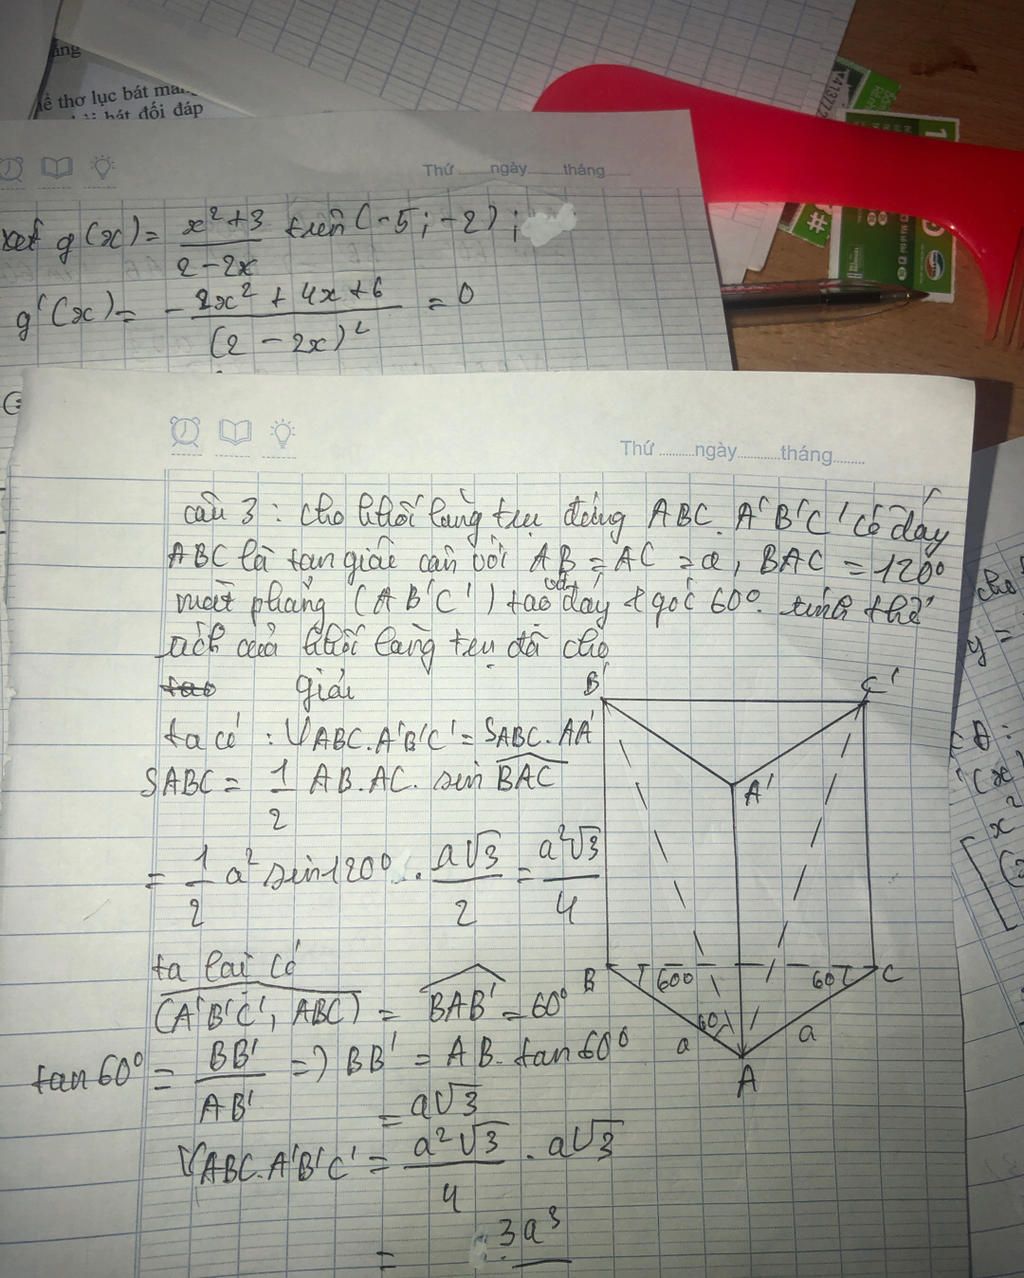 ề thơ lục bát
bát đối đáp
Thứ ngày tháng
xét g(x) = x²+3 / 2-2x trên (-5; -2);
g'(x) = - 2x² + 4x + 6 / (2 - 2x)² = 0
Thứ ngày tháng
câu 3: cho khối lăng trụ đứng ABC.A'B'C' có đáy
ABC là tam giác cân với AB = AC = a, BAC = 120°
mặt phẳng (AB'C') tạo với đáy 1 góc 60°. tính thể
tích của khối lăng trụ đã cho
giải
ta có : VABC.A'B'C' = SABC.AA'
SABC = 1/2 AB.AC. sin BAC
= 1/2 a² sin120° . a√3/2 = a²√3/4
ta lại có
(A'B'C', ABC) = BAB' = 60°
tan60° = BB'/AB' => BB' = AB. tan60°
= a√3
VABC.A'B'C' = a²√3/4 . a√3
= 3a³
B' C'
A'
B 600 60 C
60
a a
A
cho
y =